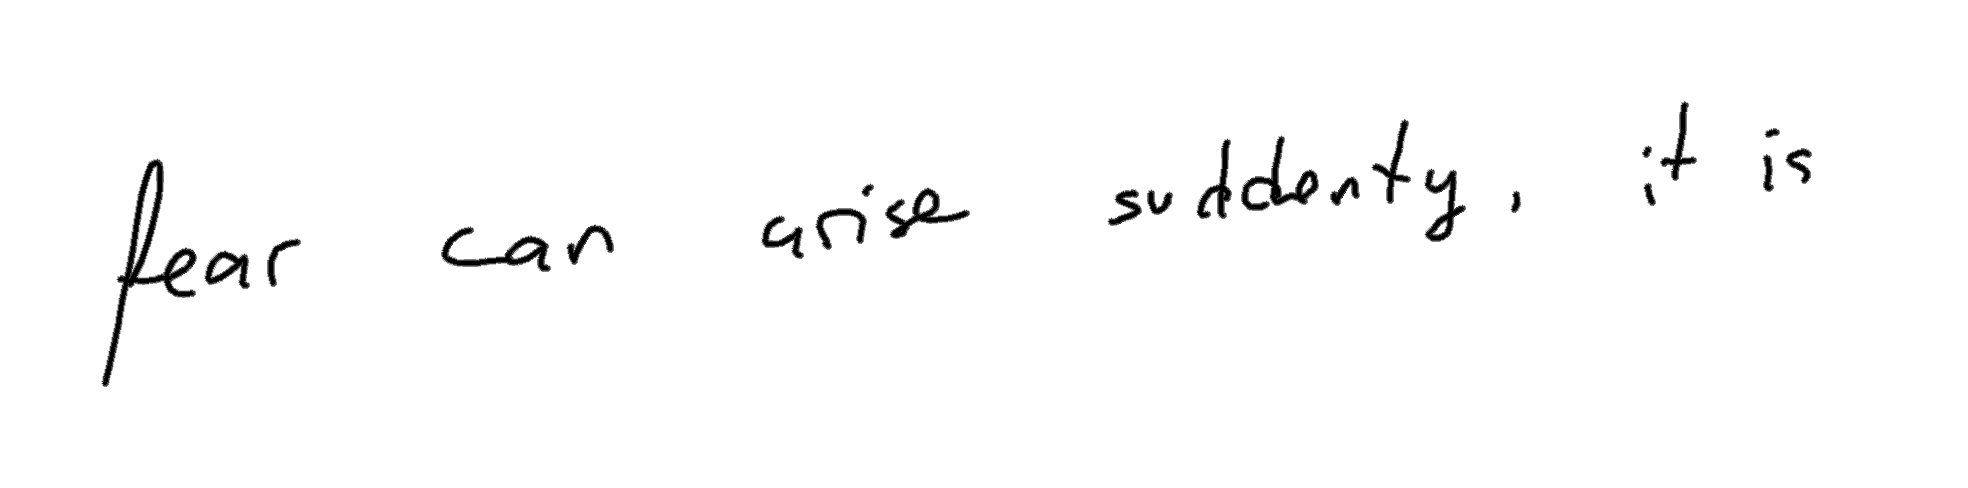 fear can arise suddenty, it is